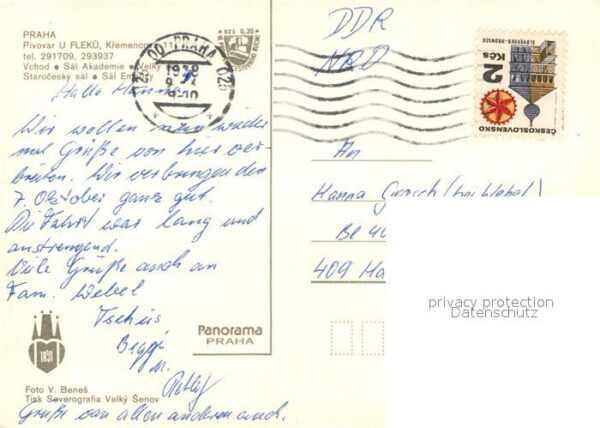 PRAHA
Pivovar U FLEKŮ, Křemencova
tel. 291709, 293937
Vchod • Sál Akademie • Velký
Staročeský sál • Sál Em
Hallo Hanna
Wir wollen nun wieder
mal Grüße von hier ver-
breiten. Wir verbringen den
7. Oktober ganz gut.
Die Fahrt war lang und
anstrengend.
Viele Grüße auch an
Fam. Webel
Tschüs
Grüße von allen anderen auch.
1891
Foto V. Beneš
Tisk Severografia Velký Šenov
Panorama
PRAHA
Kčs 0,20
PRAHA 025
DDR
NRD
2 Kčs
ČESKOSLOVENSKO
SLOVENSKO-HRONSEK
An
Hanna (bei Webel)
Bl 40
409 Ha
privacy protection
Datenschutz